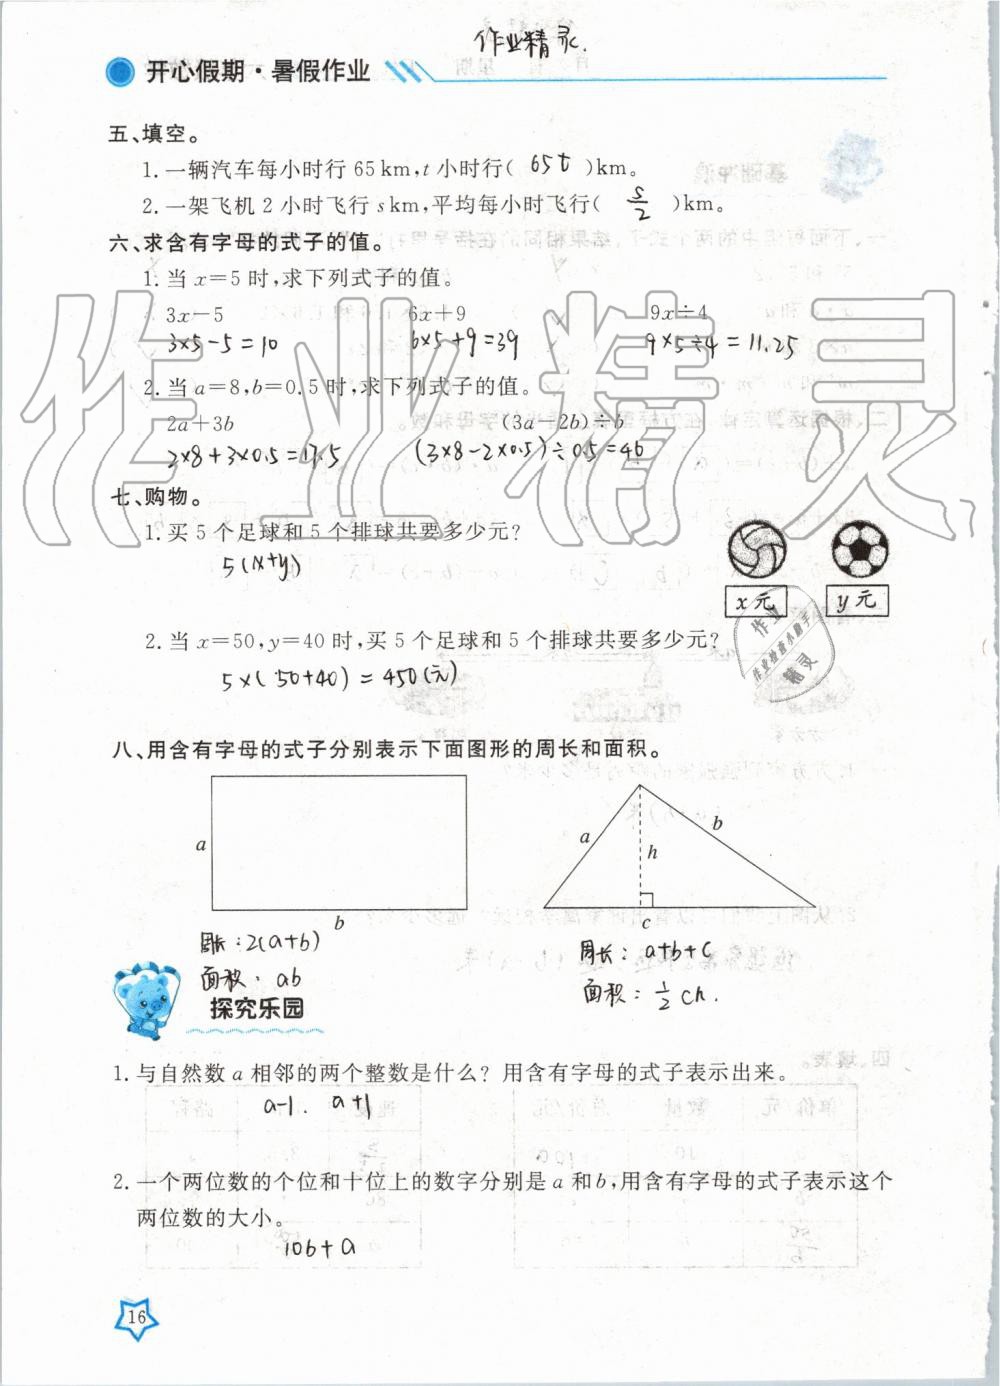 作业精灵.
开心假期·暑假作业
五、填空。
1. 一辆汽车每小时行65km,t小时行( 65t )km。
2. 一架飞机2小时飞行s km,平均每小时飞行( s/2 )km。
六、求含有字母的式子的值。
1. 当x=5时,求下列式子的值。
3x-5 6x+9 9x÷4
3×5-5=10 6×5+9=39 9×5÷4=11.25
2. 当a=8,b=0.5时,求下列式子的值。
2a+3b (3a-2b)÷b
2×8+3×0.5=17.5 (3×8-2×0.5)÷0.5=46
七、购物。
1. 买5个足球和5个排球共要多少元?
5(x+y)
x元 y元
2. 当x=50,y=40时,买5个足球和5个排球共要多少元?
5×(50+40)=450(元)
作业
作业检查小助手
精灵
八、用含有字母的式子分别表示下面图形的周长和面积。
a b
a b h c
周长:2(a+b) 周长:a+b+c
面积:ab 面积:1/2ch.
探究乐园
1. 与自然数a相邻的两个整数是什么?用含有字母的式子表示出来。
a-1. a+1
2. 一个两位数的个位和十位上的数字分别是a和b,用含有字母的式子表示这个
两位数的大小。
10b+a
16
作业精灵